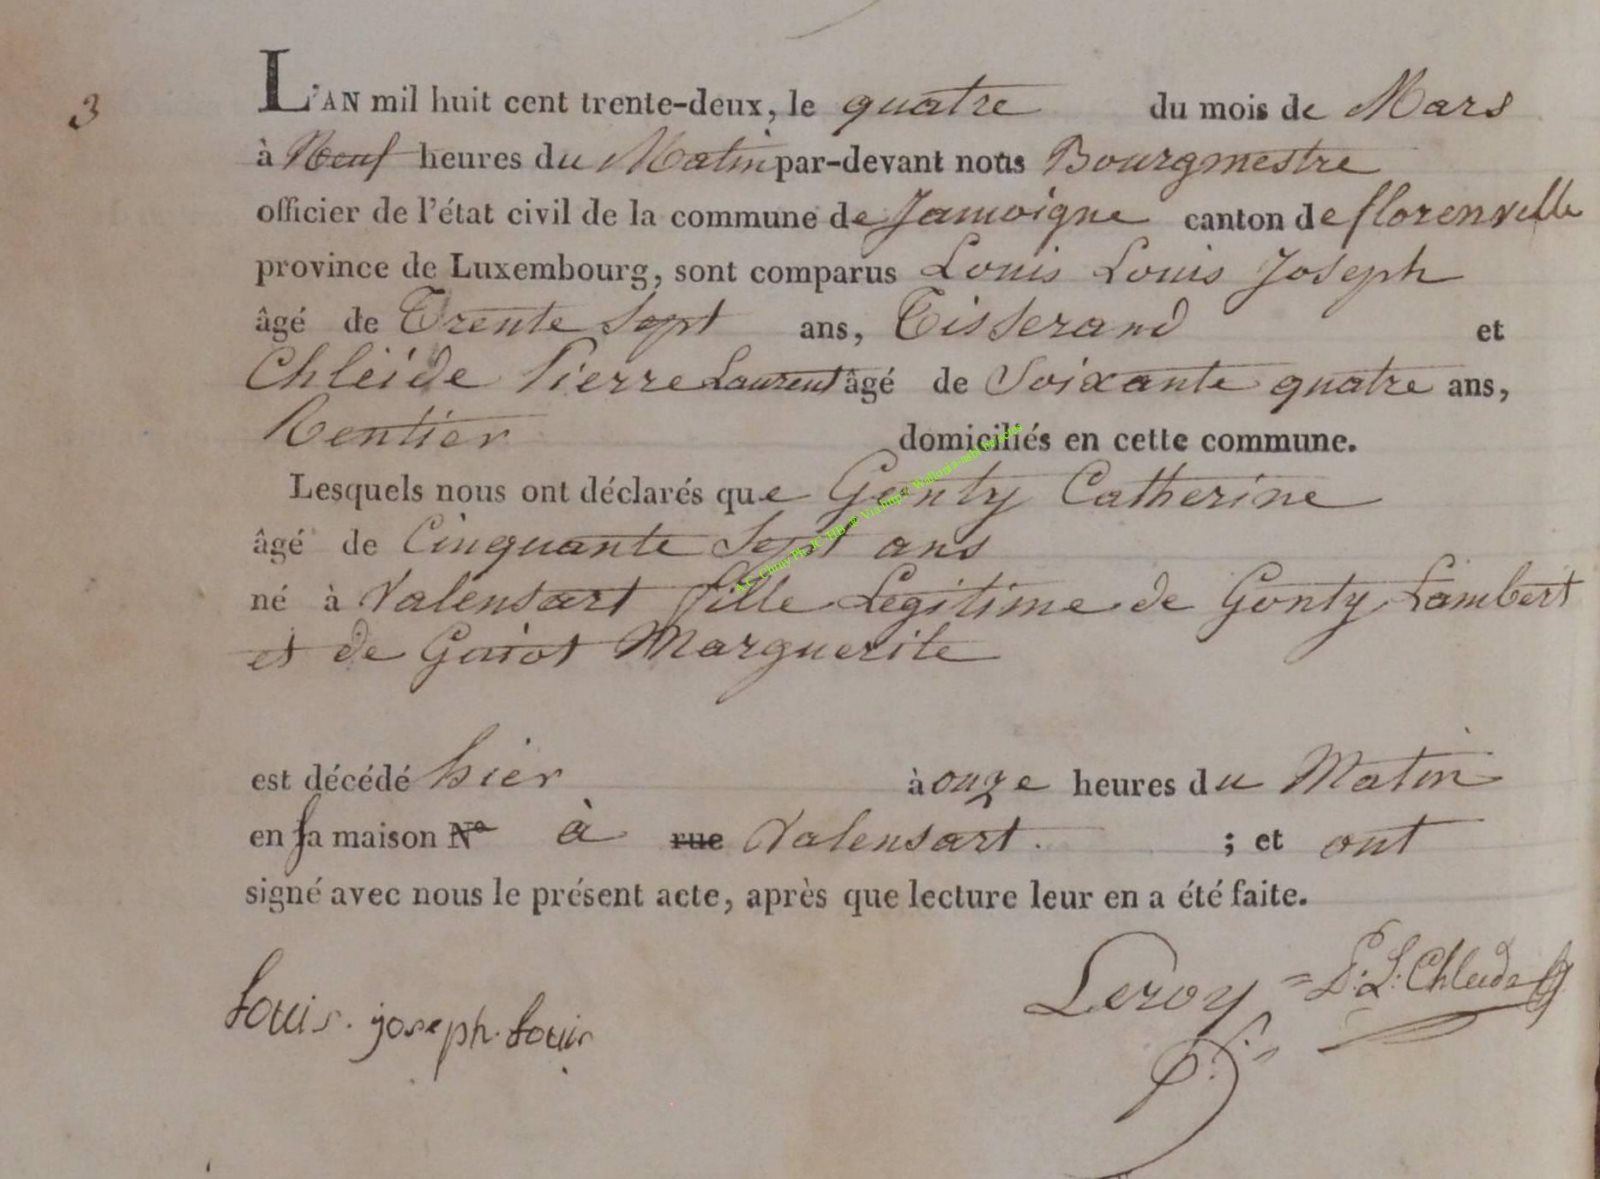 3
L'AN mil huit cent trente-deux, le quatre du mois de Mars
à Neuf heures du Matin par-devant nous Bourgmestre
officier de l'état civil de la commune de Jamoigne canton de florenville
province de Luxembourg, sont comparus Louis Louis Joseph
âgé de Trente Sept ans, Tisserand et
Chléide Pierre Laurent âgé de Soixante quatre ans,
Rentier domiciliés en cette commune.
Lesquels nous ont déclarés que Gonty Catherine
âgé de Cinquante Sept ans
né à Valensart fille Legitime de Gonty Lambert
et de Guiot Marguerite
est décédé hier à onze heures du Matin
en sa maison N° à rue Valensart. ; et ont
signé avec nous le présent acte, après que lecture leur en a été faite.
Louis. joseph. Louis
Leroy P. L. Chleide